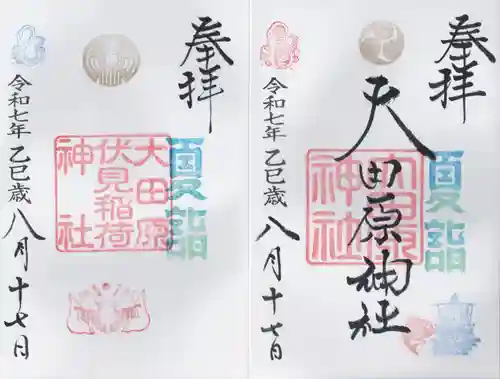 奉拝
夏詣
大田原神社
大田原
神社
令和七年 乙巳歳 八月十七日
奉拝
夏詣
大田原
伏見稲荷
神社
令和七年 乙巳歳 八月十七日